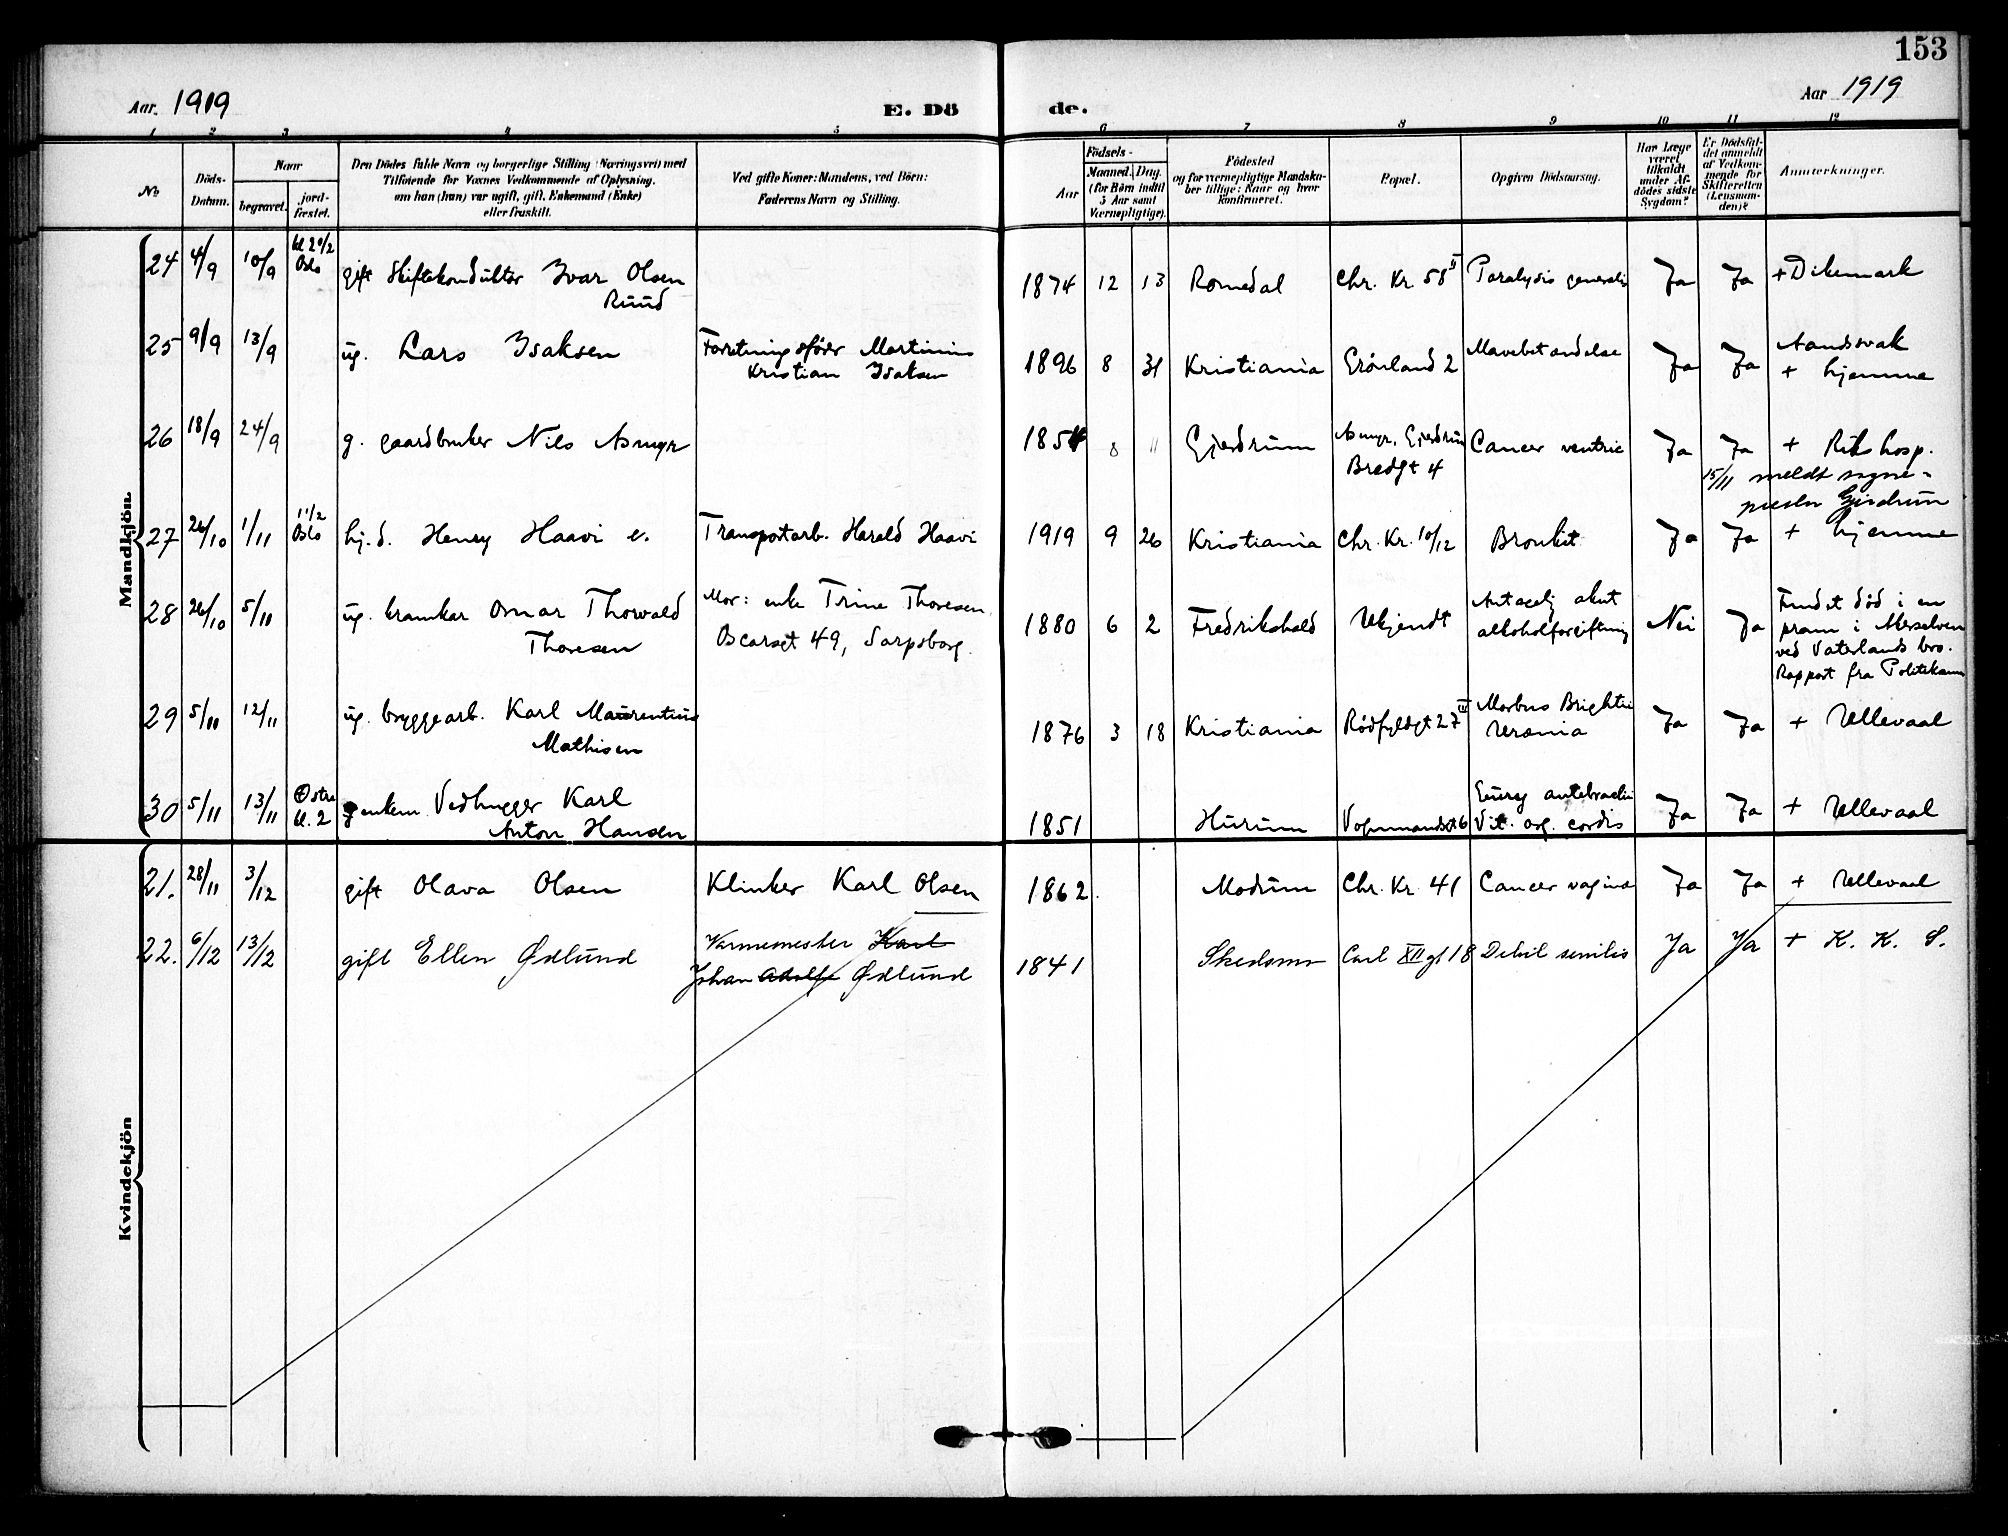 153
Aar. 1919
E. Dö
de.
Aar 1919
1 2 3 4 5 6 7 8 9 10 11 12
No
Döds-
Datum.
Naar
begravet.
jord-
fæstet.
Den Dödes fulde Navn og borgerlige Stilling (Næringsvei) med
Tilföiende for Voxnes Vedkommende af Oplysning,
om han (hun) var ugift, gift, Enkemand (Enke)
eller fraskilt.
Ved gifte Koner: Mandens, ved Börn:
Faderens Navn og Stilling.
Födsels-
Aar
Maaned. Dag.
(for Börn indtil
5 Aar samt
Værnepligtige).
Födested
og for værnepligtige Mandska-
ber tillige: Naar og hvor
konfirmeret.
Bopæl.
Opgiven Dödsaarsag.
Har Læge
været
tilkaldt
under Af-
dödes sidste
Sygdom?
Er Dödsfal-
det anmeldt
af Vedkom-
mende for
Skifteretten
(Lensman-
den)?
Anmærkninger.
Mandkjön
24 4/9 10/9 kl 2 Oslo gift Skiftekonduktør Ivar Olsen
Ruud
1874 12 13 Romedal Chr. Kr 58 II Paralysis generalis Ja Ja + Dikemark
25 9/9 13/9 ug. Lars Isaksen Forretningsfører Martinius
Kristian Isaksen
1896 8 31 Kristiania Grönland 2 Mavebetændelse Ja Ja Aandssvak
+ hjemme
26 18/9 24/9 g. gaardbruker Nils Asmyr
1854 8 " Gjerdrum Asmyr, Gjerdrum
Bredgt 4 Cancer ventric Ja Ja + Rikshosp.
15/11 meldt sogne-
presten Gjerdrum
27 26/10 1/11 11 1/2 Oslo hj. d. Henry Haavi e. Transportarb. Harald Haavi
1919 9 26 Kristiania Chr. Kr. 10/12 Bronkit Ja Ja + hjemme
28 26/10 5/11 ug. Omar Thorvald
Thoresen
Mor: enke Trine Thoresen
Oscarsgt 49, Sarpsborg.
1880 6 2 Fredrikshald Ukjendt Antagelig akut
alkoholforgiftning Nei Ja Fundet död i en
pram i Akerselven
ved Vaterlands bro.
Rapport fra Politikam
29 5/11 12/11 ug. bryggearb. Karl Maurentius
Mathisen
1876 3 18 Kristiania Rødfyldgt 27 III Morbus Brightii
Uræmia Ja Ja + Ullevaal
30 5/11 13/11 Østre
kl. 2 enkem Vedhugger Karl
Anton Hansen
1851 Hurum Vognmandsgt 6 antebrachii
Vit. org. cordis Ja Ja + Ullevaal
Kvindekjön
21. 28/11 3/12 gift Olava Olsen Klinker Karl Olsen
1862 Modum Chr. Kr. 41 Cancer vagina Ja Ja + Ullevaal
22. 6/12 13/12 gift Ellen Ødlund Varmemester Karl
Johan Adolf Ødlund
1841 Skedsmo Carl XII gt 18 Debil senilis Ja Ja + K. K. S.